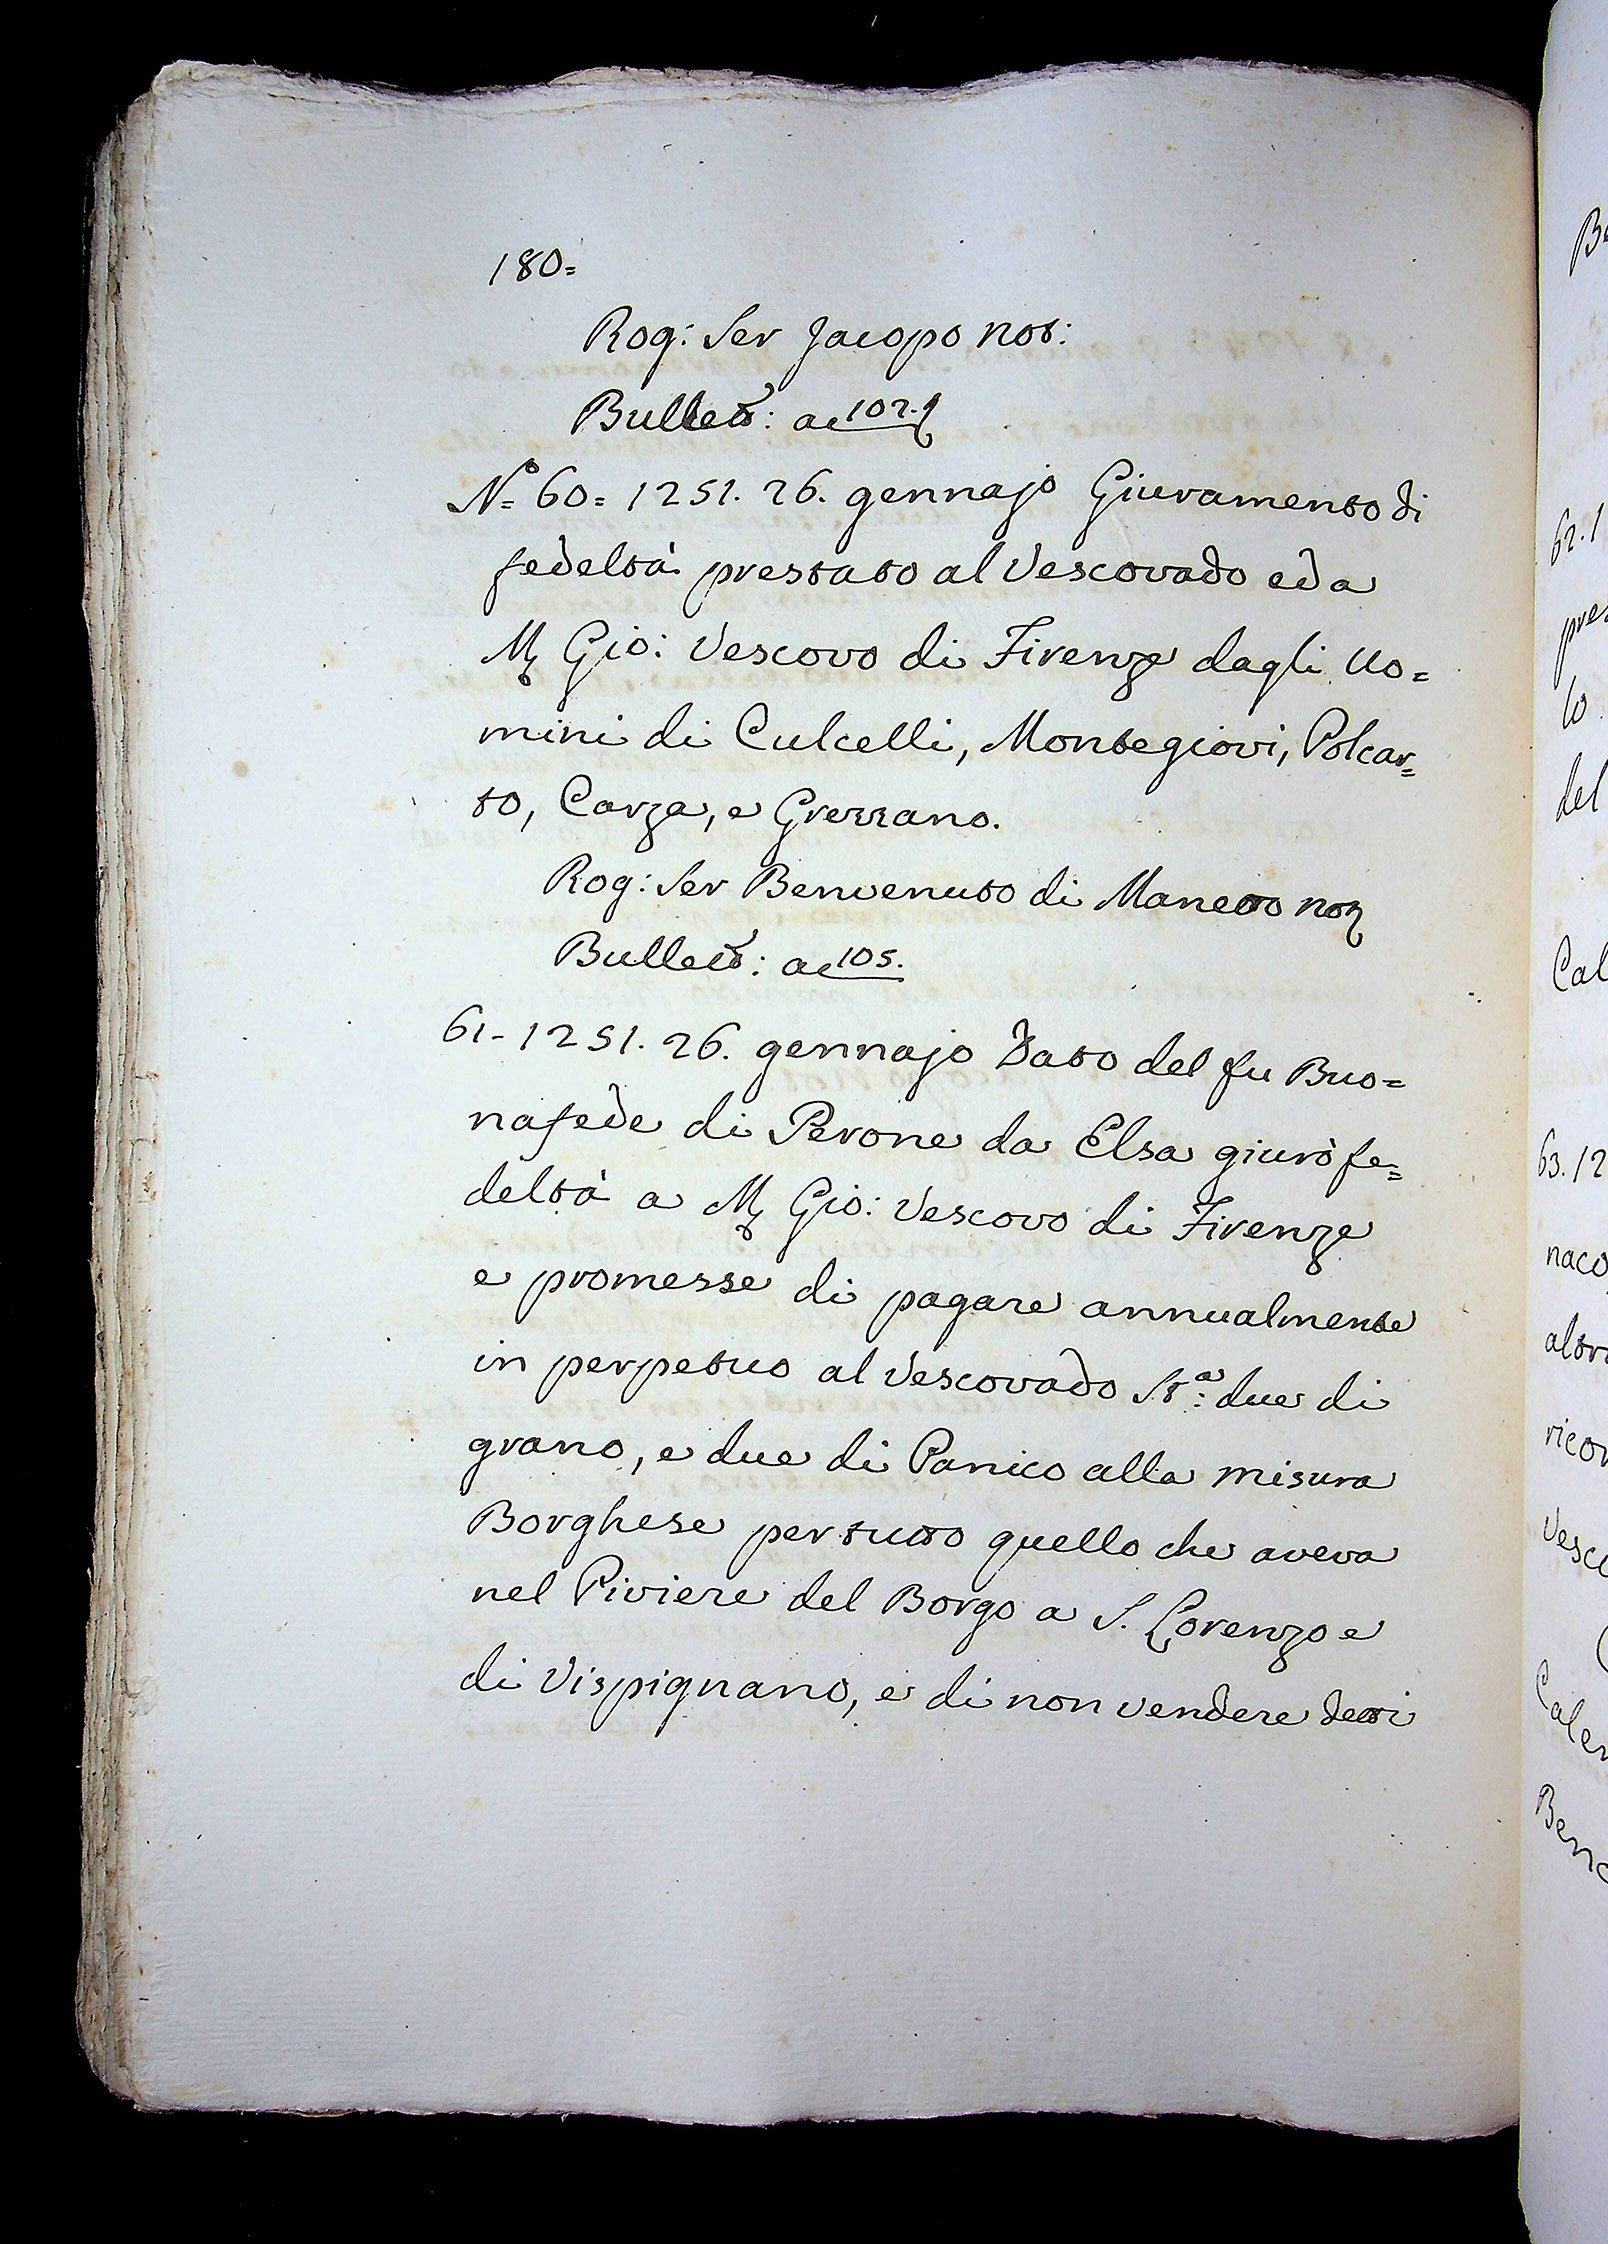 180=
Rog: Ser Jacopo not:
Bullett: ac 102.
N= 60= 1251. 26. gennajo Giuramento di
fedeltà prestato al Vescovado ed a
M. Gio: Vescovo di Firenze dagli Uo=
mini di Culcelli, Montegiovi, Polcan=
to, Carza, e Grezzano.
Rog: Ser Benvenuto di Manetto not
Bullett: ac 105.
61- 1251. 26. gennajo Dato del fu Buo=
nafede di Perone da Elsa giurò fe=
deltà a M. Gio: Vescovo di Firenze
e promesse di pagare annualmente
in perpetuo al Vescovado Sta: due di
grano, e due di Panico alla misura
Borghese per tutto quello che aveva
nel Piviere del Borgo a S. Lorenzo e
di Vispignano, e di non vendere detti
62. 1
pre
lo
del
Cal
63. 12
naco
altr
rico
Vesc
Cale
Ben